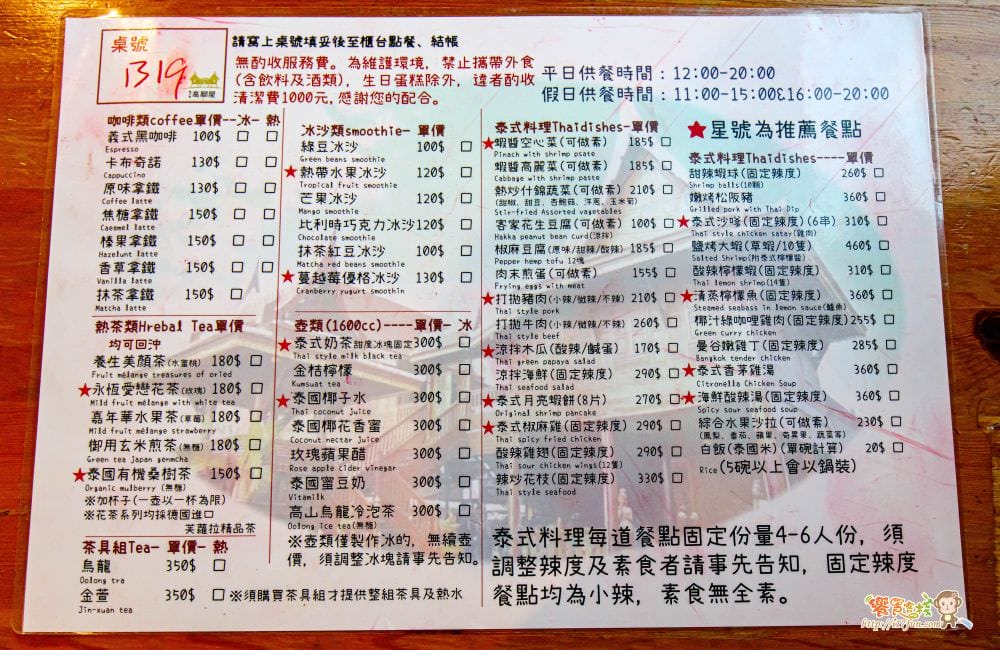 桌號
1319
高腳屋
請寫上桌號填妥後至櫃台點餐、結帳
無酌收服務費。為維護環境，禁止攜帶外食
(含飲料及酒類)，生日蛋糕除外，違者酌收
清潔費1000元,感謝您的配合。
平日供餐時間：12:00-20:00
假日供餐時間：11:00-15:00&16:00-20:00
咖啡類coffee單價--冰- 熱
義式黑咖啡 100$ □ □
Espresso
卡布奇諾 130$ □ □
Cappuccino
原味拿鐵 130$ □ □
Coffee latte
焦糖拿鐵 150$ □ □
Caeamel latte
榛果拿鐵 150$ □ □
Hazelunt latte
香草拿鐵 150$ □ □
Vanilla latte
抹茶拿鐵 150$ □
Matcha latte
熱茶類Hrebal Tea單價
均可回沖
養生美顏茶(水蜜桃) 180$ □
Fruit mélange treasures of oried
★永恆愛戀花茶(玫瑰) 180$ □
Mild fruit mélange with white tea
嘉年華水果茶(草莓) 180$ □
Mild fruit mélange strawberry
御用玄米煎茶(無糖) 180$ □
Green tea japan genmcha
★泰國有機桑樹茶 150$ □
Organic mulberry (無糖)
※加杯子(一壺以一杯為限)
※花茶系列均採德國進口
芙蘿拉精品茶
茶具組Tea- 單價- 熱
烏龍 350$ □
Oolong tra
金萱 350$ □
Jin-xuan tea
※須購買茶具組才提供整組茶具及熱水
冰沙類smoothie- 單價
綠豆冰沙 100$ □
Green beans smoothie
★熱帶水果冰沙 120$ □
Tropical fruit smoothie
芒果冰沙 120$ □
Mango smoothie
比利時巧克力冰沙120$ □
Chocolate smoothie
抹茶紅豆冰沙 100$ □
Matcha red beans smoothie
★蔓越莓優格冰沙 130$ □
Cranberry yugurt smoothie
壺類(1600cc)----單價- 冰
★泰式奶茶甜度冰塊固定300$ □
Thai style milk black tea
金桔檸檬 300$ □
Kumsuat tea
★泰國椰子水 300$ □
Thai coconut juice
泰國椰花香蜜 300$ □
Coconut nectar juice
玫瑰蘋果醋 300$ □
Rose apple cider vinegar
泰國蜜豆奶 300$ □
Vitamilk
高山烏龍冷泡茶 300$ □
Oolong ice tea(無糖)
※壺類僅製作冰的，無續壺
價，須調整冰塊請事先告知。
泰式料理Thaidishes-單價
★蝦醬空心菜(可做素) 185$ □
Pinach with shrimp psate
蝦醬高麗菜(可做素) 185$ □
Cabbage with shrimp paste
熱炒什錦蔬菜(可做素) 210$ □
(甜椒、甜豆、杏鮑菇、洋蔥、玉米筍)
Stir-fried Assorted vagetables
客家花生豆腐(可做素) 100$ □
Hakka peanut bean curd(涼拌)
椒麻豆腐(原味/甜辣/酸辣) 185$ □
Pepper hemp tofu 12塊
肉末煎蛋(可做素) 155$ □
Frying eggs with meat
★打拋豬肉(小辣/微辣/不辣) 210$ □
Thai style pork
打拋牛肉(小辣/微辣/不辣) 260$ □
Thai style beef
★涼拌木瓜(酸辣/鹹蛋) 170$ □
Thai green papaya salad
涼拌海鮮(固定辣度) 290$ □
Thai seafood salad
★泰式月亮蝦餅(8片) 270$ □
Original shrimp pancake
★泰式椒麻雞(固定辣度) 290$ □
Thai spicy fried chicken
酸辣雞翅(固定辣度) 290$ □
Thai sour chicken wings(12隻)
辣炒花枝(固定辣度) 330$ □
Thai style seafood
★星號為推薦餐點
泰式料理Thaidishes----單價
甜辣蝦球(固定辣度) 260$ □
Shrimp balls(10顆)
嫩烤松阪豬 360$ □
Grilled pork with Thai Dip
★泰式沙嗲(固定辣度)(6串) 310$ □
Thai style chicken satay(雞肉)
鹽烤大蝦(草蝦/10隻) 460$ □
Salted Shrimp(附泰式檸檬醬)
酸辣檸檬蝦(固定辣度) 310$ □
Thai lemon shrimp(14隻)
★清蒸檸檬魚(固定辣度) 360$ □
Steamed seabass in lemon sauce(鱸魚)
椰汁綠咖哩雞肉(固定辣度)255$ □
Green curry chicken
曼谷嫩雞丁(固定辣度) 285$ □
Bangkok tender chicken
★泰式香茅雞湯 360$ □
Citronella Chicken Soup
★海鮮酸辣湯(固定辣度) 360$ □
Spicy sour seafood soup
綜合水果沙拉(可做素) 230$ □
(鳳梨、番茄、蘋果、奇異果、蔬菜等)
白飯(泰國米)(單碗計算) 20$ □
Rice(5碗以上會以鍋裝)
泰式料理每道餐點固定份量4-6人份，須
調整辣度及素食者請事先告知，固定辣度
餐點均為小辣，素食無全素。